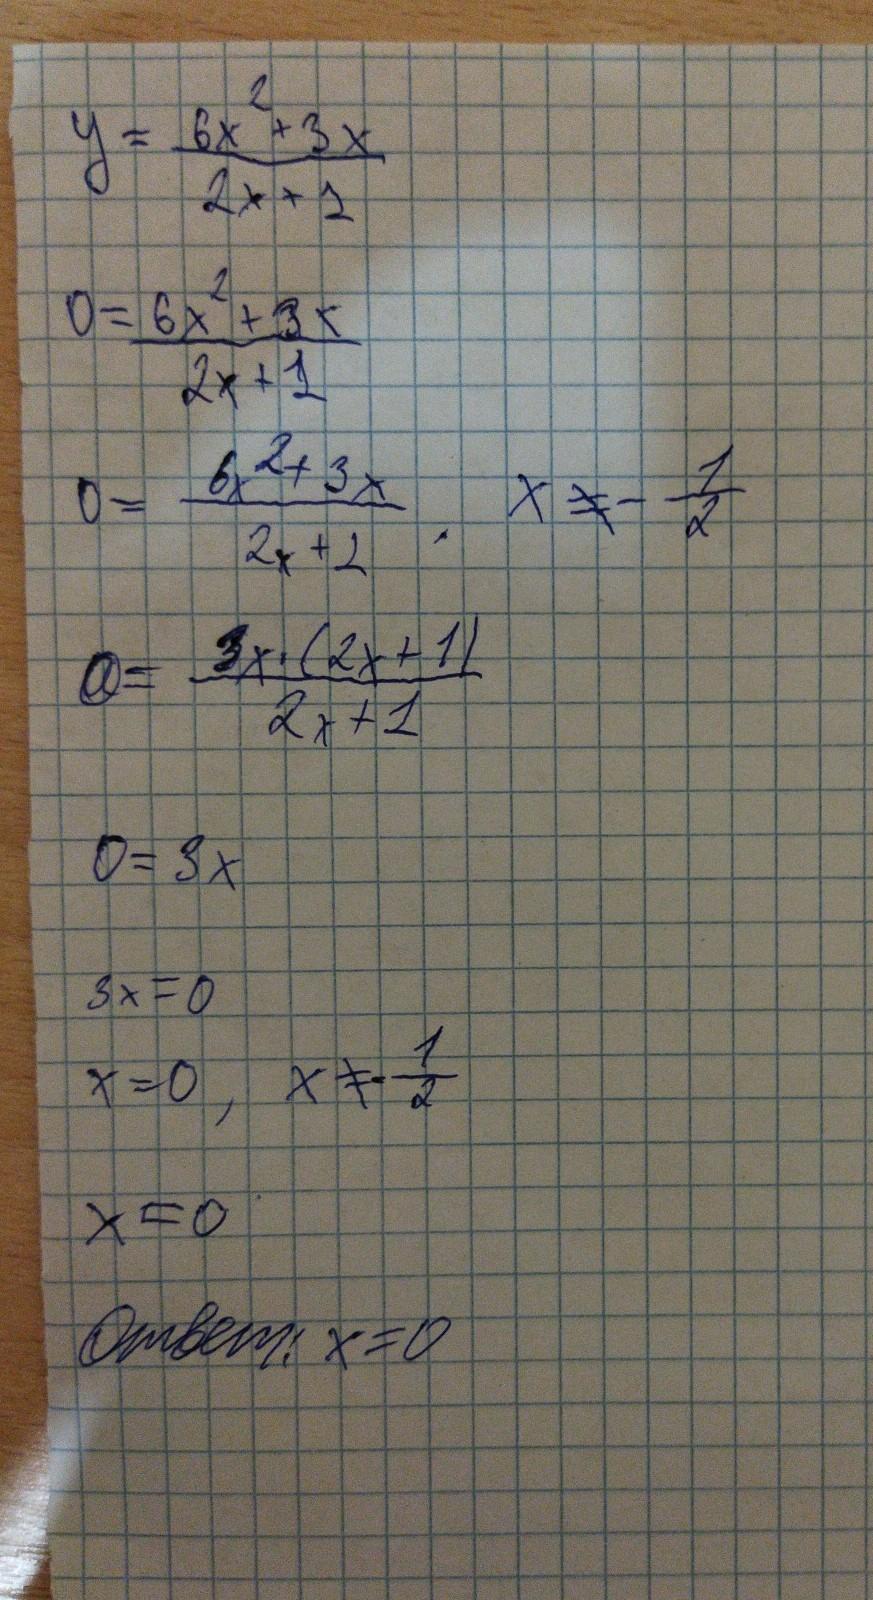 y = (6x² + 3x)/(2x + 1)
0 = (6x² + 3x)/(2x + 1)
0 = (6x² + 3x)/(2x + 1) . x ≠ - 1/2
0 = (3x · (2x + 1))/(2x + 1)
0 = 3x
3x = 0
x = 0, x ≠ - 1/2
x = 0
Ответ: x = 0